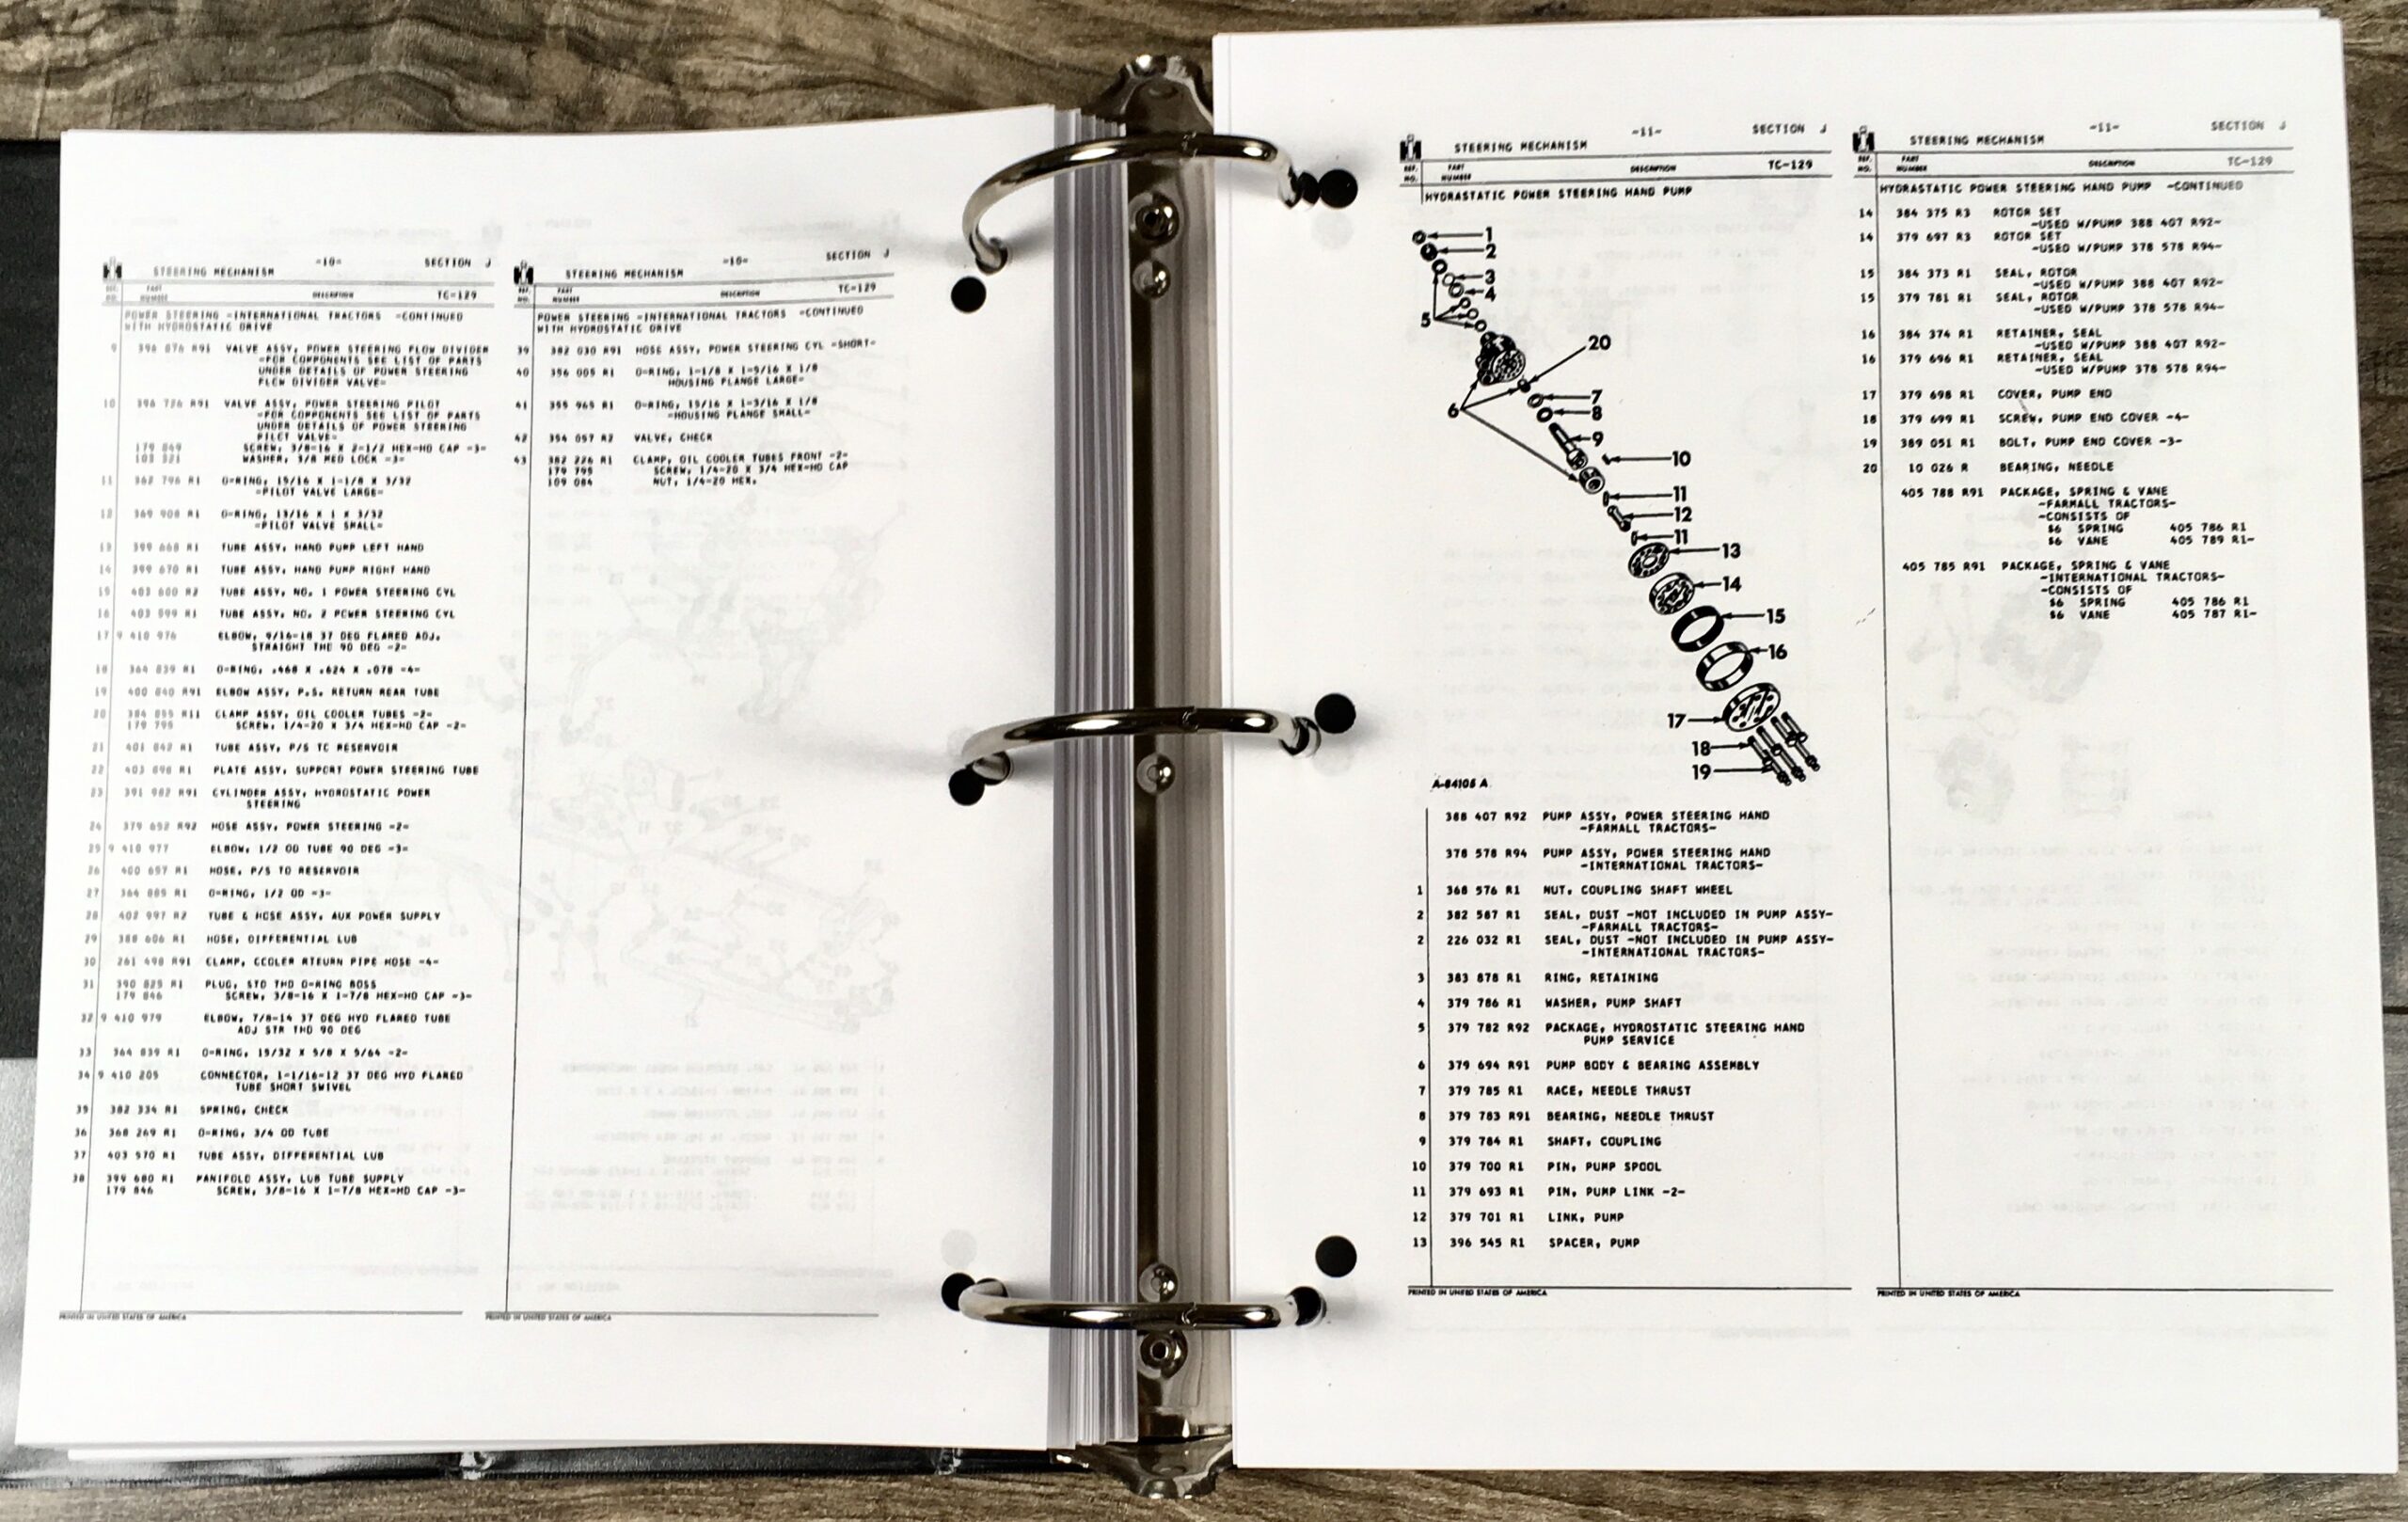 STEERING MECHANISM -10- SECTION J
REF. NO. PART NUMBER DESCRIPTION TC-129
POWER STEERING -INTERNATIONAL TRACTORS -CONTINUED
WITH HYDROSTATIC DRIVE
9 396 076 R91 VALVE ASSY, POWER STEERING FLOW DIVIDER
-FOR COMPONENTS SEE LIST OF PARTS
UNDER DETAILS OF POWER STEERING
FLOW DIVIDER VALVE-
10 396 726 R91 VALVE ASSY, POWER STEERING PILOT
-FOR COMPONENTS SEE LIST OF PARTS
UNDER DETAILS OF POWER STEERING
PILOT VALVE-
179 849 SCREW, 3/8-16 X 2-1/2 HEX-HD CAP -3-
103 321 WASHER, 3/8 MED LOCK -3-
11 362 796 R1 O-RING, 15/16 X 1-1/8 X 3/32
-PILOT VALVE LARGE-
12 369 908 R1 O-RING, 13/16 X 1 X 3/32
-PILOT VALVE SMALL-
13 399 668 R1 TUBE ASSY, HAND PUMP LEFT HAND
14 399 670 R1 TUBE ASSY, HAND PUMP RIGHT HAND
15 403 600 R2 TUBE ASSY, NO. 1 POWER STEERING CYL
16 403 599 R1 TUBE ASSY, NO. 2 POWER STEERING CYL
17 9 410 976 ELBOW, 9/16-18 37 DEG FLARED ADJ.
STRAIGHT THD 90 DEG -2-
18 364 839 R1 O-RING, .468 X .624 X .078 -4-
19 400 840 R91 ELBOW ASSY, P.S. RETURN REAR TUBE
20 384 855 R11 CLAMP ASSY, OIL COOLER TUBES -2-
179 795 SCREW, 1/4-20 X 3/4 HEX-HD CAP -2-
21 401 842 R1 TUBE ASSY, P/S TC RESERVOIR
22 403 898 R1 PLATE ASSY, SUPPORT POWER STEERING TUBE
23 391 982 R91 CYLINDER ASSY, HYDROSTATIC POWER
STEERING
24 379 652 R92 HOSE ASSY, POWER STEERING -2-
25 9 410 977 ELBOW, 1/2 OD TUBE 90 DEG -3-
26 400 657 R1 HOSE, P/S TO RESERVOIR
27 364 885 R1 O-RING, 1/2 OD -3-
28 402 997 R2 TUBE & HOSE ASSY, AUX POWER SUPPLY
29 388 606 R1 HOSE, DIFFERENTIAL LUB
30 261 498 R91 CLAMP, CCOLER RTEURN PIPE HOSE -4-
31 390 825 R1 PLUG, STD THD O-RING BOSS
179 846 SCREW, 3/8-16 X 1-7/8 HEX-HD CAP -3-
32 9 410 979 ELBOW, 7/8-14 37 DEG HYD FLARED TUBE
ADJ STR THD 90 DEG
33 364 839 R1 O-RING, 15/32 X 5/8 X 5/64 -2-
34 9 410 205 CONNECTOR, 1-1/16-12 37 DEG HYD FLARED
TUBE SHORT SWIVEL
35 382 334 R1 SPRING, CHECK
36 368 269 R1 O-RING, 3/4 OD TUBE
37 403 570 R1 TUBE ASSY, DIFFERENTIAL LUB
38 399 680 R1 MANIFOLD ASSY, LUB TUBE SUPPLY
179 846 SCREW, 3/8-16 X 1-7/8 HEX-HD CAP -3-
PRINTED IN UNITED STATES OF AMERICA
STEERING MECHANISM -10- SECTION J
REF. NO. PART NUMBER DESCRIPTION TC-129
POWER STEERING -INTERNATIONAL TRACTORS -CONTINUED
WITH HYDROSTATIC DRIVE
39 382 030 R91 HOSE ASSY, POWER STEERING CYL -SHORT-
40 356 005 R1 O-RING, 1-1/8 X 1-5/16 X 1/8
HOUSING FLANGE LARGE-
41 355 965 R1 O-RING, 15/16 X 1-3/16 X 1/8
-HOUSING FLANGE SMALL-
42 354 057 R2 VALVE, CHECK
43 382 226 R1 CLAMP, OIL COOLER TUBES FRONT -2-
179 795 SCREW, 1/4-20 X 3/4 HEX-HD CAP
109 084 NUT, 1/4-20 HEX.
PRINTED IN UNITED STATES OF AMERICA
STEERING MECHANISM -11- SECTION J
REF. NO. PART NUMBER DESCRIPTION TC-129
HYDRASTATIC POWER STEERING HAND PUMP
1
2
3
4
5
20
7
6
8
9
10
11
12
11
13
14
15
16
17
18
19
A-84105 A
388 407 R92 PUMP ASSY, POWER STEERING HAND
-FARMALL TRACTORS-
378 578 R94 PUMP ASSY, POWER STEERING HAND
-INTERNATIONAL TRACTORS-
1 368 576 R1 NUT, COUPLING SHAFT WHEEL
2 382 587 R1 SEAL, DUST -NOT INCLUDED IN PUMP ASSY-
-FARMALL TRACTORS-
2 226 032 R1 SEAL, DUST -NOT INCLUDED IN PUMP ASSY-
-INTERNATIONAL TRACTORS-
3 383 878 R1 RING, RETAINING
4 379 786 R1 WASHER, PUMP SHAFT
5 379 782 R92 PACKAGE, HYDROSTATIC STEERING HAND
PUMP SERVICE
6 379 694 R91 PUMP BODY & BEARING ASSEMBLY
7 379 785 R1 RACE, NEEDLE THRUST
8 379 783 R91 BEARING, NEEDLE THRUST
9 379 784 R1 SHAFT, COUPLING
10 379 700 R1 PIN, PUMP SPOOL
11 379 693 R1 PIN, PUMP LINK -2-
12 379 701 R1 LINK, PUMP
13 396 545 R1 SPACER, PUMP
PRINTED IN UNITED STATES OF AMERICA
STEERING MECHANISM -11- SECTION J
REF. NO. PART NUMBER DESCRIPTION TC-129
HYDRASTATIC POWER STEERING HAND PUMP -CONTINUED
14 384 375 R3 ROTOR SET
-USED W/PUMP 388 407 R92-
14 379 697 R3 ROTOR SET
-USED W/PUMP 378 578 R94-
15 384 373 R1 SEAL, ROTOR
-USED W/PUMP 388 407 R92-
15 379 781 R1 SEAL, ROTOR
-USED W/PUMP 378 578 R94-
16 384 374 R1 RETAINER, SEAL
-USED W/PUMP 388 407 R92-
16 379 696 R1 RETAINER, SEAL
-USED W/PUMP 378 578 R94-
17 379 698 R1 COVER, PUMP END
18 379 699 R1 SCREW, PUMP END COVER -4-
19 389 051 R1 BOLT, PUMP END COVER -3-
20 10 026 R BEARING, NEEDLE
405 788 R91 PACKAGE, SPRING & VANE
-FARMALL TRACTORS-
-CONSISTS OF
$6 SPRING 405 786 R1
$6 VANE 405 789 R1-
405 785 R91 PACKAGE, SPRING & VANE
-INTERNATIONAL TRACTORS-
-CONSISTS OF
$6 SPRING 405 786 R1
$6 VANE 405 787 R1-
PRINTED IN UNITED STATES OF AMERICA